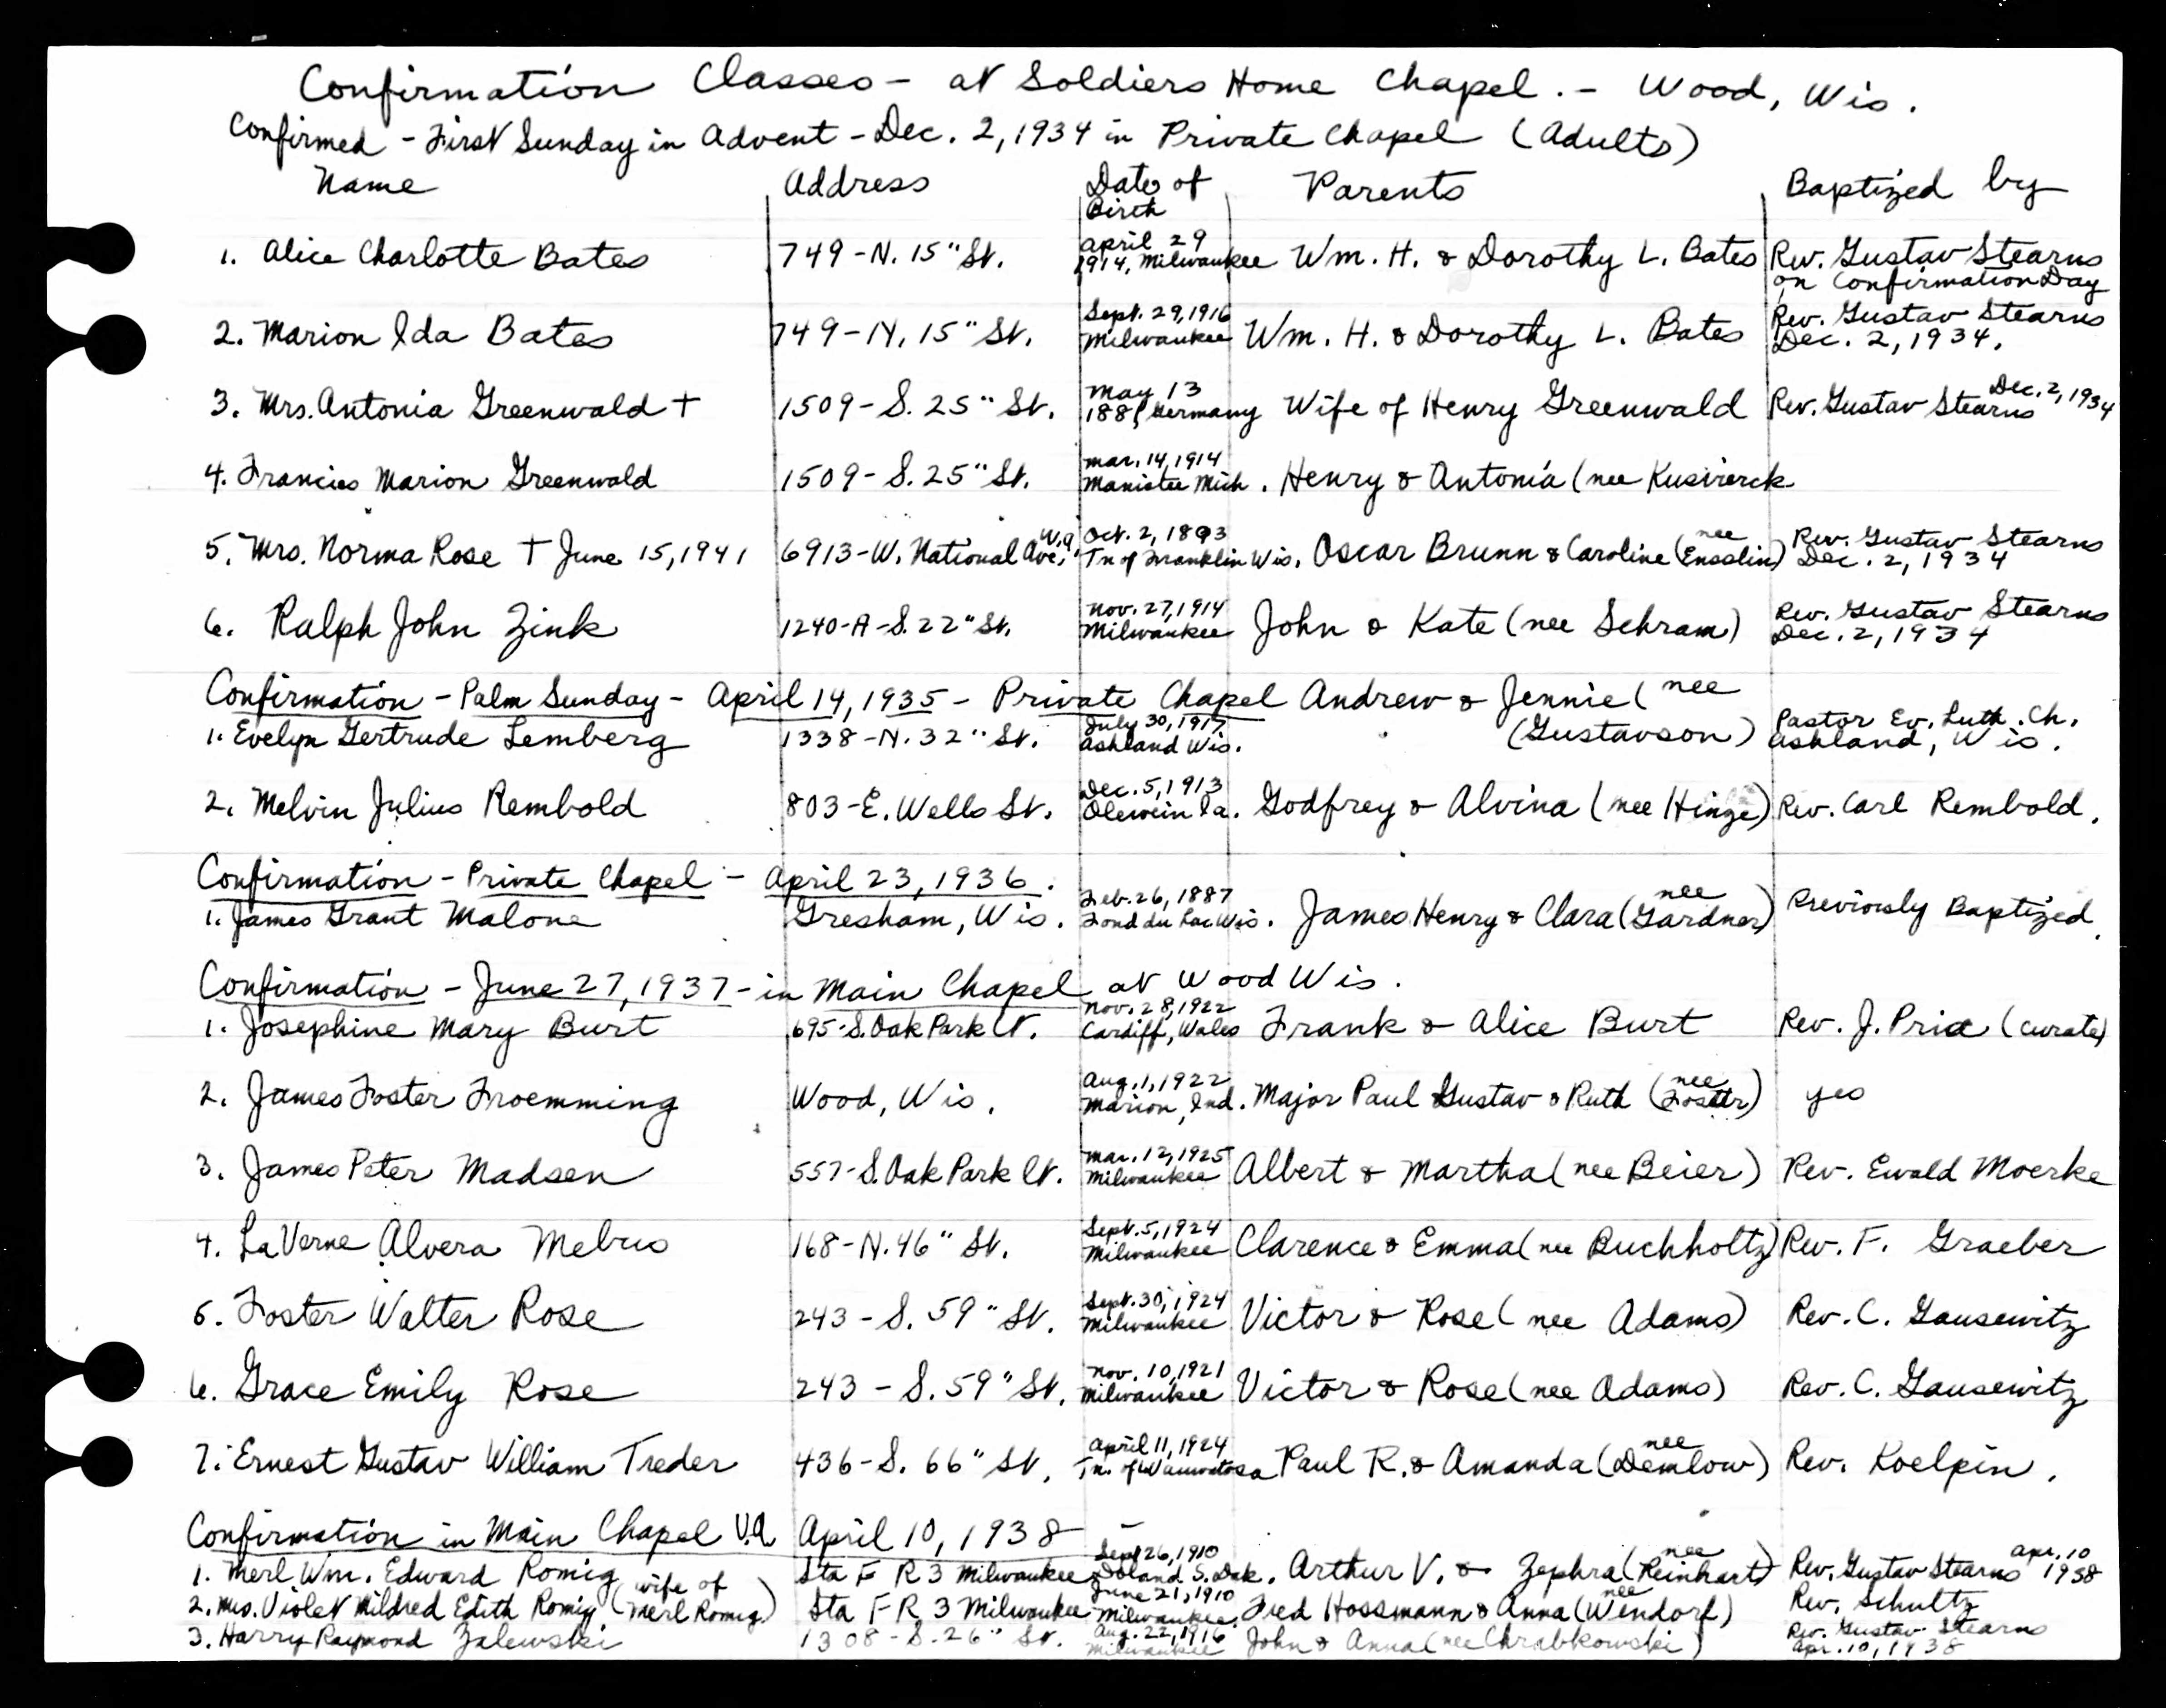 Confirmation Classes - at Soldiers Home Chapel. - Wood, Wis.
Confirmed - First Sunday in Advent - Dec. 2, 1934 in Private Chapel (Adults)
Name Address Date of Birth Parents Baptized by
1. Alice Charlotte Bates 749-N. 15" St. April 29 1914, Milwaukee Wm. H. & Dorothy L. Bates Rev. Gustav Stearns on Confirmation Day
2. Marion Ida Bates 749-N. 15" St. Sept. 29, 1916 Milwaukee Wm. H. & Dorothy L. Bates Rev. Gustav Stearns Dec. 2, 1934.
3. Mrs. Antonia Greenwald † 1509-S. 25" St. May 13 Germany Wife of Henry Greenwald Rev. Gustav Stearns Dec. 2, 1934
4. Francies Marion Greenwald 1509-S. 25" St. Mar. 14, 1914 Manistee Mich. Henry & Antonia (nee
5. Mrs. Norma Rose † June 15, 1941 6913-W. National Ave. W.A. Oct. 2, 1893 Tn of Franklin Wis. Oscar Brunn & Caroline (nee Ensslin) Rev. Gustav Stearns Dec. 2, 1934
6. Ralph John Zink 1240-A-S. 22" St. Nov. 27, 1914 Milwaukee John & Kate (nee Schram) Rev. Gustav Stearns Dec. 2, 1934
Confirmation - Palm Sunday - April 14, 1935 - Private Chapel
1. Evelyn Gertrude Lemberg 1338-N. 32" St. July 30, 1917 Ashland Wis. Andrew & Jennie (nee (Gustavson) Pastor Ev. Luth. Ch. Ashland, Wis.
2. Melvin Julius Rembold 803-E. Wells St. Dec. 5, 1913 Olewein Ia. Godfrey & Alvina (nee Hinze) Rev. Carl Rembold.
Confirmation - Private Chapel - April 23, 1936.
1. James Grant Malone Gresham, Wis. Feb. 26, 1887 Fond du Lac Wis. James Henry & Clara (nee Gardner) Previously Baptized.
Confirmation - June 27, 1937 - in Main Chapel at Wood Wis.
1. Josephine Mary Burt 695-S. Oak Park Ct. Nov. 28, 1922 Cardiff, Wales Frank & Alice Burt Rev. J. (curate)
2. James Foster Froemming Wood, Wis. Aug. 1, 1922 Marion, Ind. Major Paul Gustav & Ruth (nee Foster) yes
3. James Peter Madsen 557-S. Oak Park Ct. Mar. 12, 1925 Milwaukee Albert & Martha (nee Beier) Rev. Ewald Moerke
4. LaVerne Alvera Mebus 168-N. 46" St. Sept. 5, 1924 Milwaukee Clarence & Emma (nee Buchholtz) Rev. F. Graeber
5. Foster Walter Rose 243-S. 59" St. Sept. 30, 1924 Milwaukee Victor & Rose (nee Adams) Rev. C. Gausewitz
6. Grace Emily Rose 243-S. 59" St. Nov. 10, 1921 Milwaukee Victor & Rose (nee Adams) Rev. C. Gausewitz
7. Ernest Gustav William Treder 436-S. 66" St. April 11, 1924 Tn. of Wauwatosa Paul R. & Amanda (nee Demlow) Rev. Koelpin.
Confirmation in Main Chapel V.A. April 10, 1938
1. Merl Wm. Edward Romig Sta F R 3 Milwaukee Sept 26, 1910 Doland S. Dak. Arthur V. & Zephra (nee Reinhart) Rev. Gustav Stearns Apr. 10 1938
2. Mrs. Violet Mildred Edith Romig (wife of Merl Romig) Sta F R 3 Milwaukee June 21, 1910 Milwaukee. Fred Hossmann & Anna (nee Wendorf) Rev. Schultz
3. Harry Raymond Zalewski 1308-S. 26" St. Aug. 22, 1916 Milwaukee John & Anna (nee Chrabkowski) Rev. Gustav Stearns Apr. 10, 1938